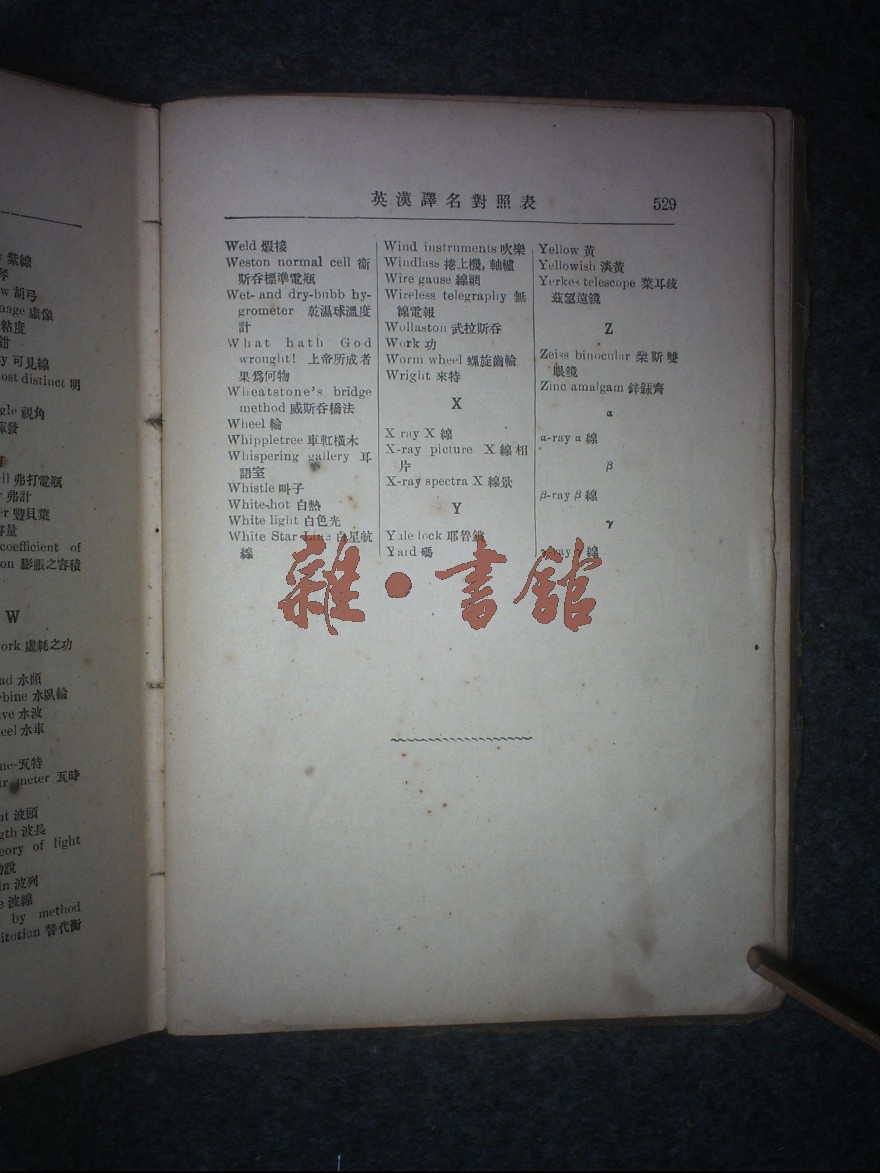 紫線
琴
w 胡弓
mage 虛像
粘度
鉗
y 可見線
ost distinct 明
gle 視角
揮發
ll 弗打電瓶
r 弗計
er 豐貝葉
容量
coefficient of
on 膨脹之容積
W
ork 虛耗之功
ad 水頭
rbine 水臥輪
ve 水波
eel 水車
ne-瓦特
ur meter 瓦時
nt 波頭
gth 波長
eory of light
動說
in 波列
e 波線
by method
itution 替代衡
英漢譯名對照表 529
Weld 煆接
Weston normal cell 衞
斯吞標準電瓶
Wet- and dry-bubb hy-
grometer 乾濕球溫度
計
What hath God
wrought! 上帝所成者
果爲何物
Wheatstone's bridge
method 威斯吞橋法
Wheel 輪
Whippletree 車軏橫木
Whispering gallery 耳
語室
Whistle 叫子
White-hot 白熱
White light 白色光
White Star Line 白星航
線
Wind instruments 吹樂
Windlass 捲上機, 軸轤
Wire gause 線網
Wireless telegraphy 無
線電報
Wollaston 武拉斯呑
Work 功
Worm wheel 螺旋齒輪
Wright 來特
X
X ray X 線
X-ray picture X 線相
片
X-ray spectra X 線景
Y
Yale lock 耶魯鎖
Yard 碼
Yellow 黃
Yellowish 淡黃
Yerkes telescope 葉耳歧
茲望遠鏡
Z
Zeiss binocular 柴斯雙
眼鏡
Zinc amalgam 鋅銾齊
α
α-ray α 線
β
β-ray β 線
γ
γ-ray γ 線
雜·書館